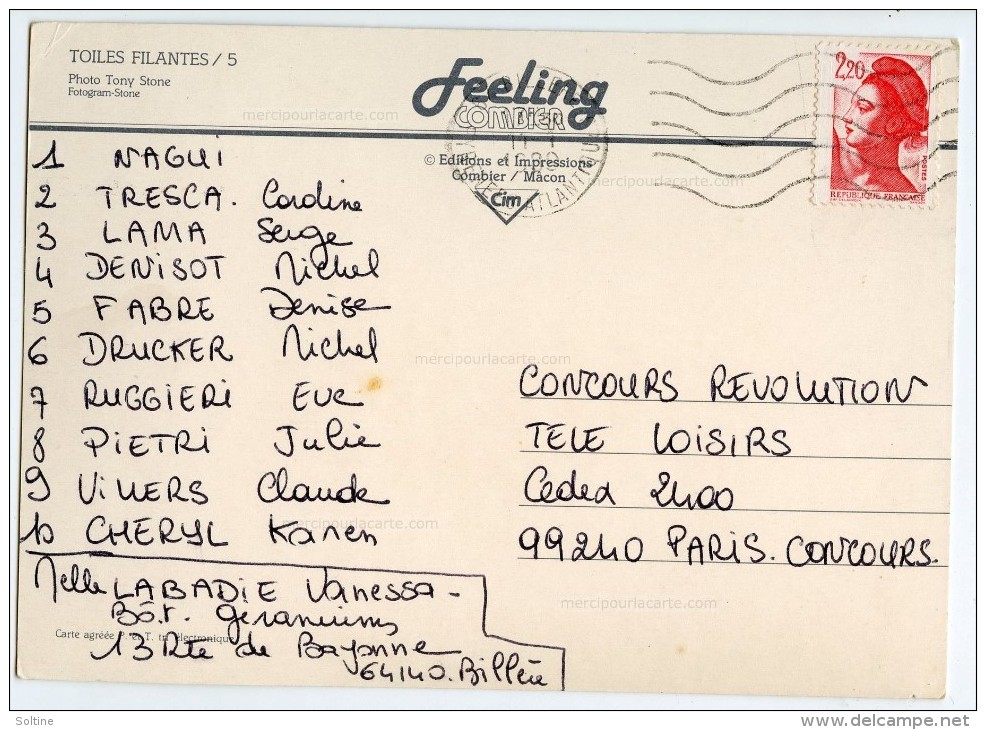 TOILES FILANTES / 5
Photo Tony Stone
Fotogram-Stone
Feeling
COMBIER
© Editions et Impressions
Combier / Mâcon
Cim
ATLANTIQUES
2,20
POSTES
REPUBLIQUE FRANÇAISE
mercipourlacarte.com
mercipourlacarte.com
1 NAGUI
2 TRESCA. Caroline
3 LAMA Serge
4 DENISOT Michel
5 FABRE Denise
6 DRUCKER Michel
mercipourlacarte.com
7 RUGGIERI Eve
8 PIETRI Julie
9 VILLERS Claude
10 CHERYL Karen
mercipourlacarte.com
CONCOURS REVOLUTION
TELE LOISIRS
Cedex 2400
99240 PARIS. CONCOURS.
Melle LABADIE Vanessa -
Bât. Geraniums
13 Rte de Bayonne
64140. Billère
mercipourlacarte.com
Carte agréée P. et T. tri électronique
Soltine
delcampe.net